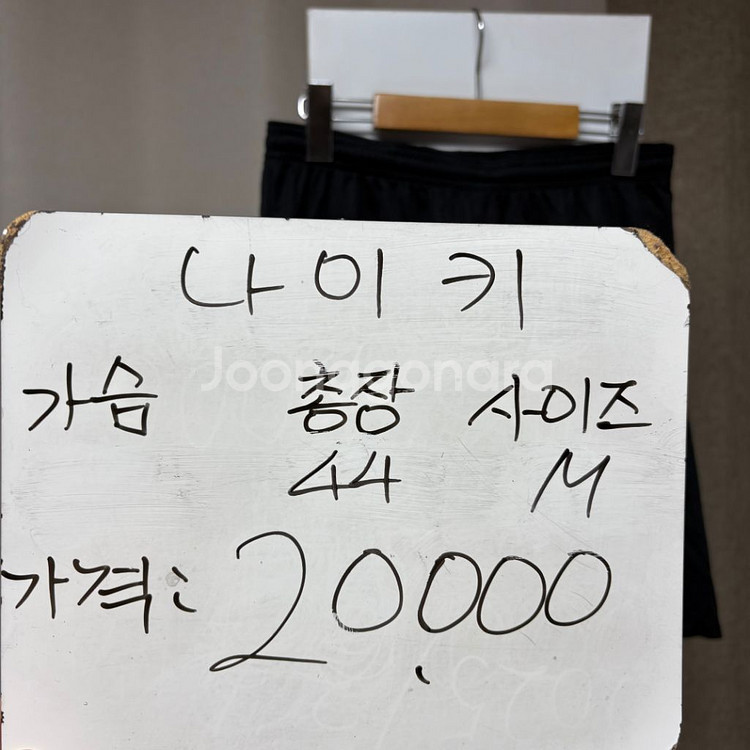 나이키
Joonggonara
가슴 총장 사이즈
44 M
가격: 20,000